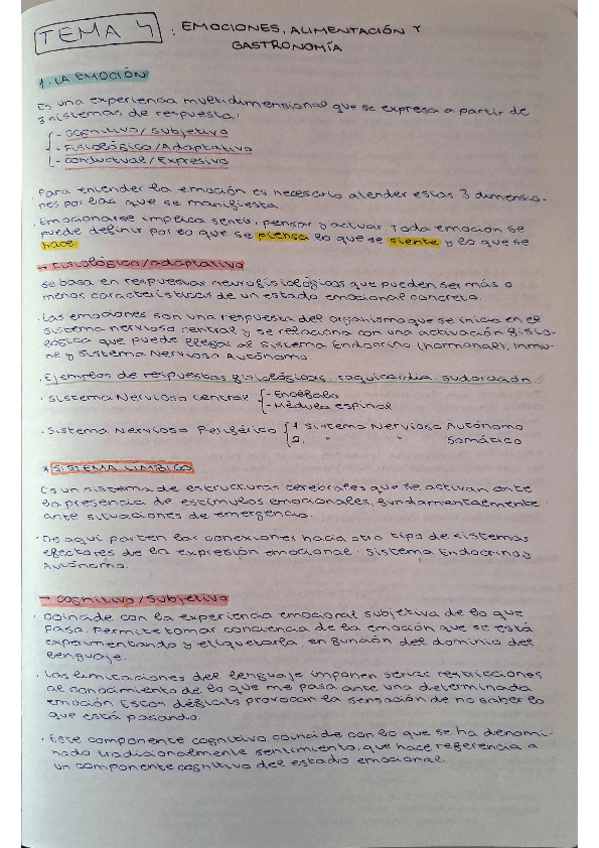 TEMA 4 : EMOCIONES, ALIMENTACIÓN Y
GASTRONOMÍA
1. LA EMOCIÓN
Es una experiencia multidimensional que se expresa a partir de
3 sistemas, de respuesta:
- Cognitivo / Subjetivo
- Fisiológico / Adaptativo
- Conductual / Expresivo
Para entender la emoción es necesario atender estas 3 dimensio-
nes por las que se manifiesta.
Emocionarse implica sentir, pensar y activar. Toda emoción se
puede definir por lo que se piensa lo que se siente y lo que se
hace.
→ Fisiológico / adaptativo
Se basa en respuestas neurofisiológicas que pueden ser más o
menos características de un estado emocional concreto.
· Las emociones son una respuesta del organismo que se inicia en el
sistema nervioso central y se relaciona con una activación fisio-
lógica que puede llegar al Sistema Endocrino (hormonal), Inmu-
ne y Sistema Nervioso Autónomo.
· Ejemplos de respuestas fisiológicas: taquicardia, sudoración.
· Sistema Nervioso Central - Encéfalo
- Médula espinal
· Sistema Nervioso Periférico 1 Sistema Nervioso Autónomo
2. " " Somático
* SISTEMA LÍMBICO
Es un sistema de estructuras cerebrales que se activan ante
la presencia de estímulos emocionales, fundamentalmente
ante situaciones de emergencia.
· De aquí parten las conexiones hacia otro tipo de sistemas
efectores de la expresión emocional: Sistema Endocrino y
Autónomo.
→ Cognitivo / Subjetivo
· Coincide con la experiencia emocional subjetiva de lo que
pasa. Permite tomar conciencia de la emoción que se está
experimentando y etiquetarla, en función del dominio del
lenguaje.
· Las limitaciones del lenguaje imponen serias restricciones
al conocimiento de lo que me pasa ante una determinada
emoción. Estos déficits provocan la sensación de no saber lo
que está pasando.
· Este componente cognitivo coincide con lo que se ha denomi-
nado tradicionalmente sentimiento, que hace referencia a
un componente cognitivo del estado emocional.